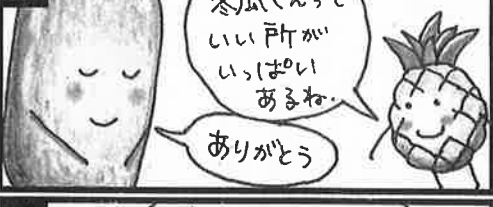 冬瓜くんって
いい所が
いっぱい
あるね.
ありがとう